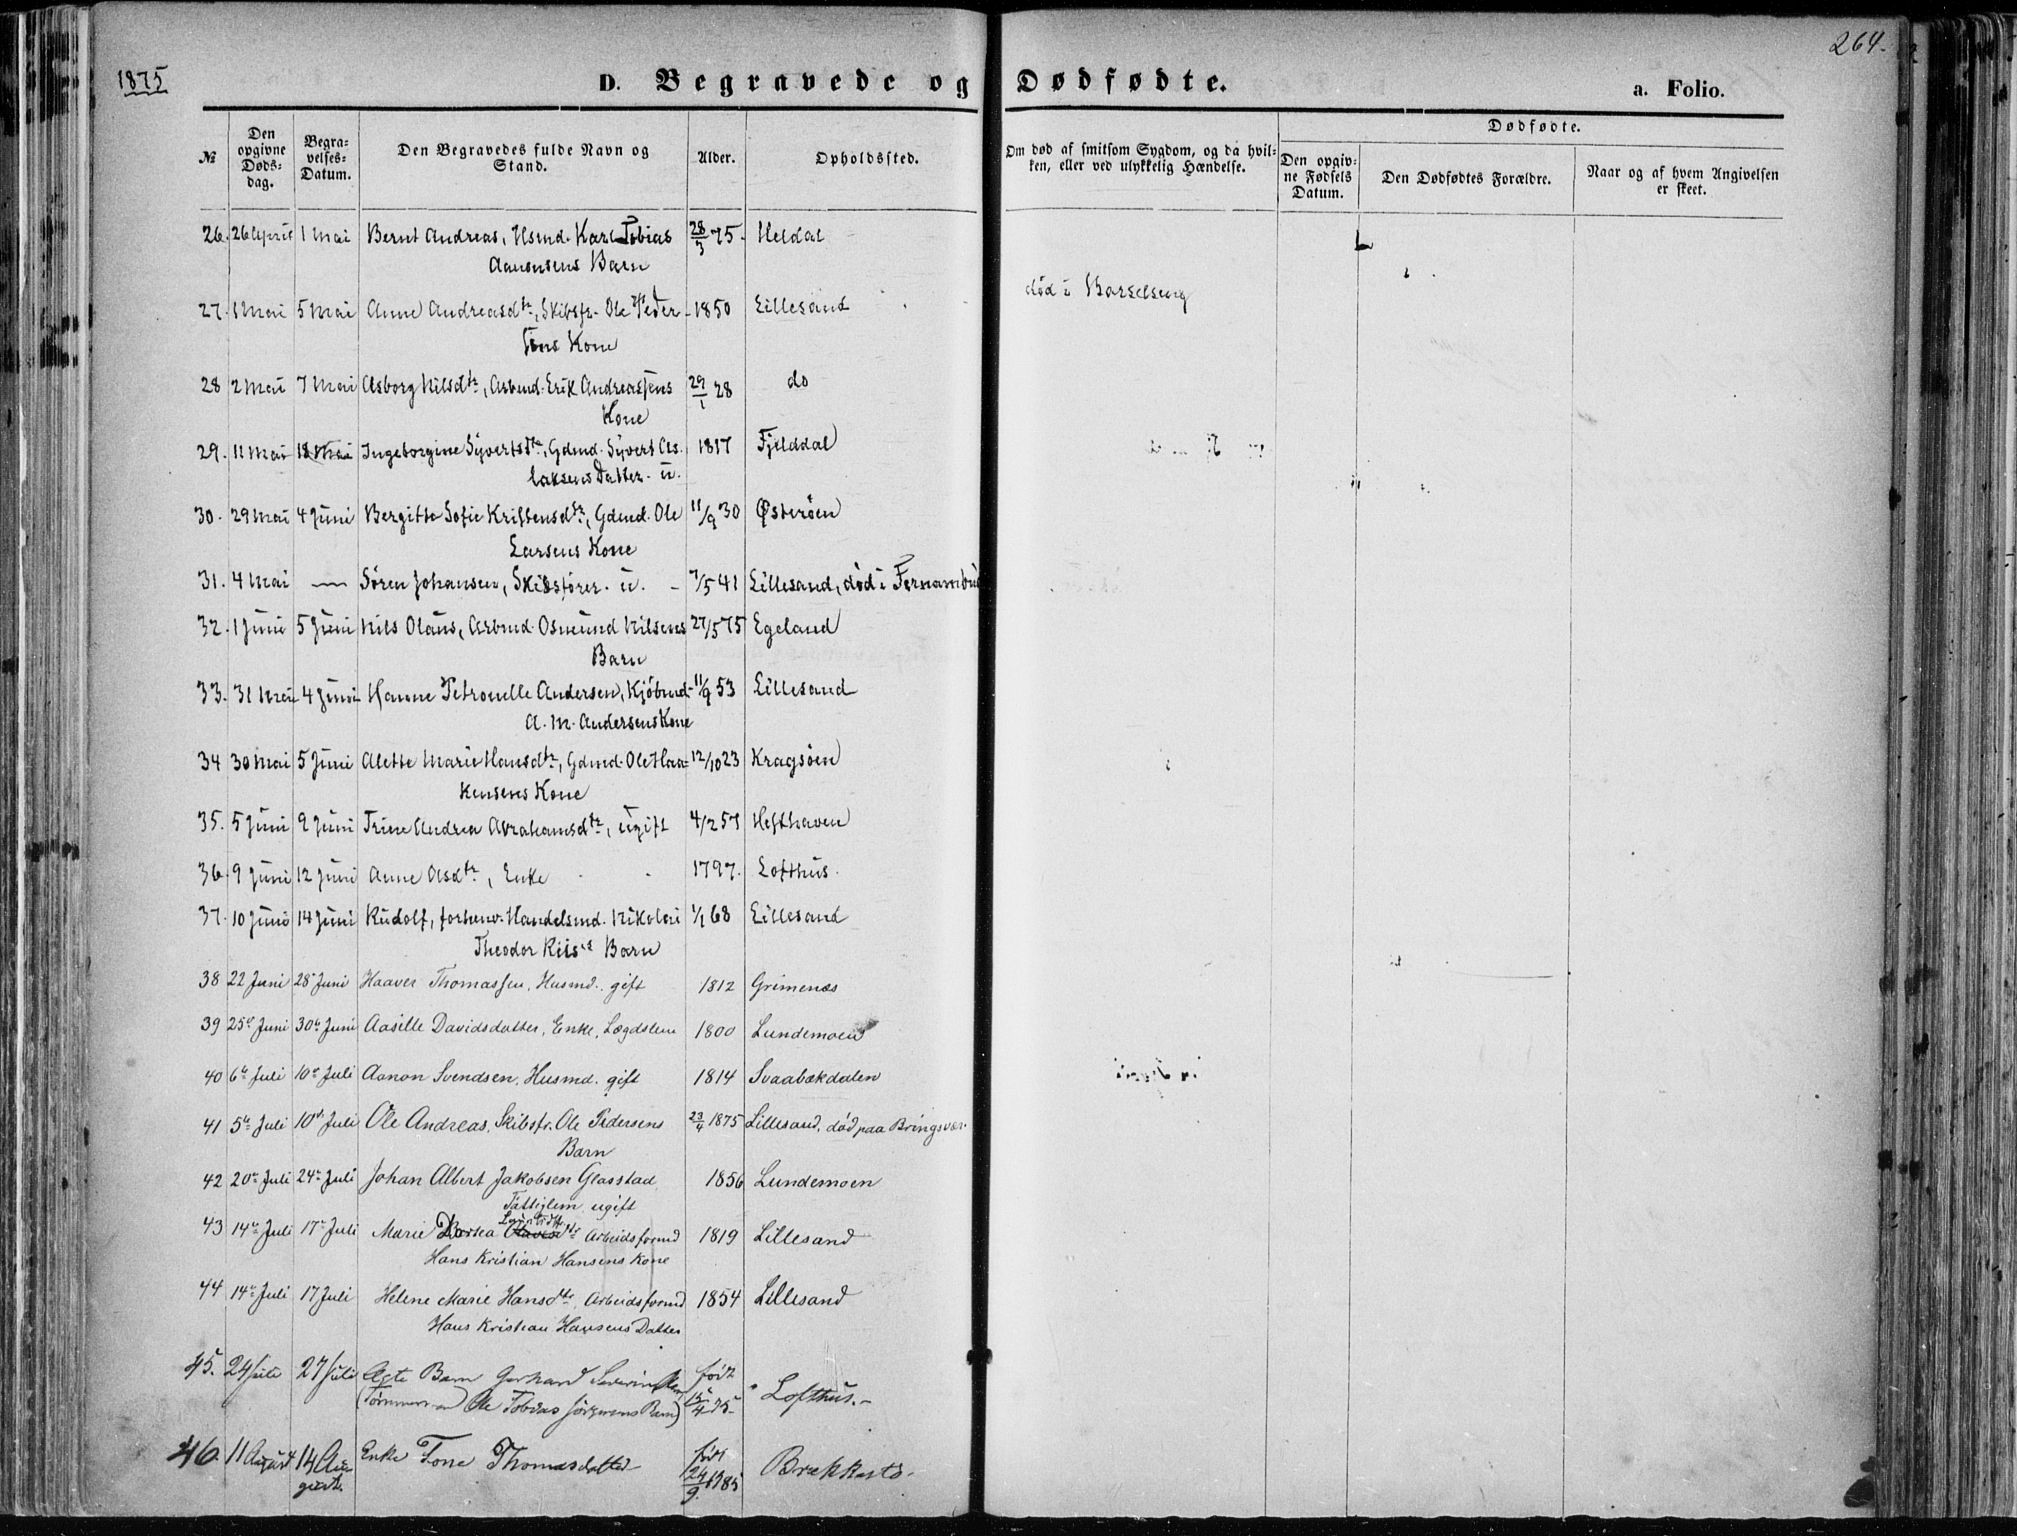 264.
1875
D. Begravede og Dødfødte.
a. Folio.
№
Den opgivne Døds-dag.
Begra-velses-Datum.
Den Begravedes fulde Navn og Stand.
Alder.
Opholdssted.
Om død af smitsom Sygdom, og da hvil-ken, eller ved ulykkelig Hændelse.
Dødfødte.
Den opgiv-ne Fødsels Datum.
Den Dødfødtes Forældre.
Naar og af hvem Angivelsen er skeet.
26. 26 April 1 Mai Bernt Andreas, Hsmd. Karl Tobias 28/3 75. Heldal
Aanensens Barn
død i Barselseng
27. 1 Mai 5 Mai Anne Andreasdtr, Skibsfr. Ole Peder- 1850 Lillesand
sens Kone
28 2 Mai 7 Mai Asborg Nilsdtr, Arbmd. Erik Andreassens 29/1 28 do
Kone
29. 11 Mai 18 Mai Ingeborgine Syvertsdtr, Gdmd. Syvert As- 1817 Fjelddal
laksens Datter. u.
30. 29 Mai 4 Juni Bergitte Sofie Kristensdtr, Gdmd. Ole 11/9 30 Østerøen
Larsens Kone
31. 4 Mai — Søren Johansen, Skibsfører. u. - 7/5 41 Lillesand, død i Fernambuk
32. 1 Juni 5 Juni Nils Olaus, Arbmd. Osmund Nilsens 27/5 75 Egeland
Barn
33. 31 Mai 4 Juni Hanne Petronelle Andersen, Kjøbmd. 11/9 53 Lillesand
A. M. Andersens Kone
34 30 Mai 5 Juni Alette Marie Hansdtr, Gdmd. Ole Haa- 12/10 23 Kragsøen
kensens Kone
35. 5 Juni 9 Juni Trine Andrea Abrahamsdtr, ugift 4/2 57 Hefthaven
36. 9 Juni 12 Juni Anne Olsdtr, Enke 1797. Lofthus.
37. 10 Juni 14 Juni Rudolf, forhenv. Handelsmd. Nikolai 1/1 68 Lillesand
Theodor Riis's Barn
38 22 Juni 28 Juni Haaver Thomassen, Husmd. gift 1812 Grimenæs
39 25de Juni 30te Juni Aasille Davidsdatter, Enke, Lægdslem 1800 Lundemoen
40 6te Juli 10de Juli Aanon Svendsen, Husmd. gift 1814 Svaabækdalen
41 5te Juli 10de Juli Ole Andreas, Skibsfr. Ole Pedersens 23/4 1875 Lillesand, død paa Bringsvær.
Barn
42 20de Juli 24de Juli Johan Albert Jakobsen Glasstad 1856 Lundemoen
Fattiglem, ugift
43 14de Juli 17de Juli Marie Dortea Olavesdtr Arbeidsformd 1819 Lillesand
Hans Kristian Hansens Kone
44 14de Juli 17 Juli Helene Marie Hansdtr, Arbeidsformd 1854 Lillesand
Hans Kristian Hansens Datter
45. 24 Juli 27 Juli Ægte Barn Gerhard Severin født Lofthus.-
(Tømmermand Ole Tobias Jørgensens Barn) 15/4 75-
46. 11 August 14 August. Enke Tone Thomasdatter født 24/9 1785 Brækkestø.